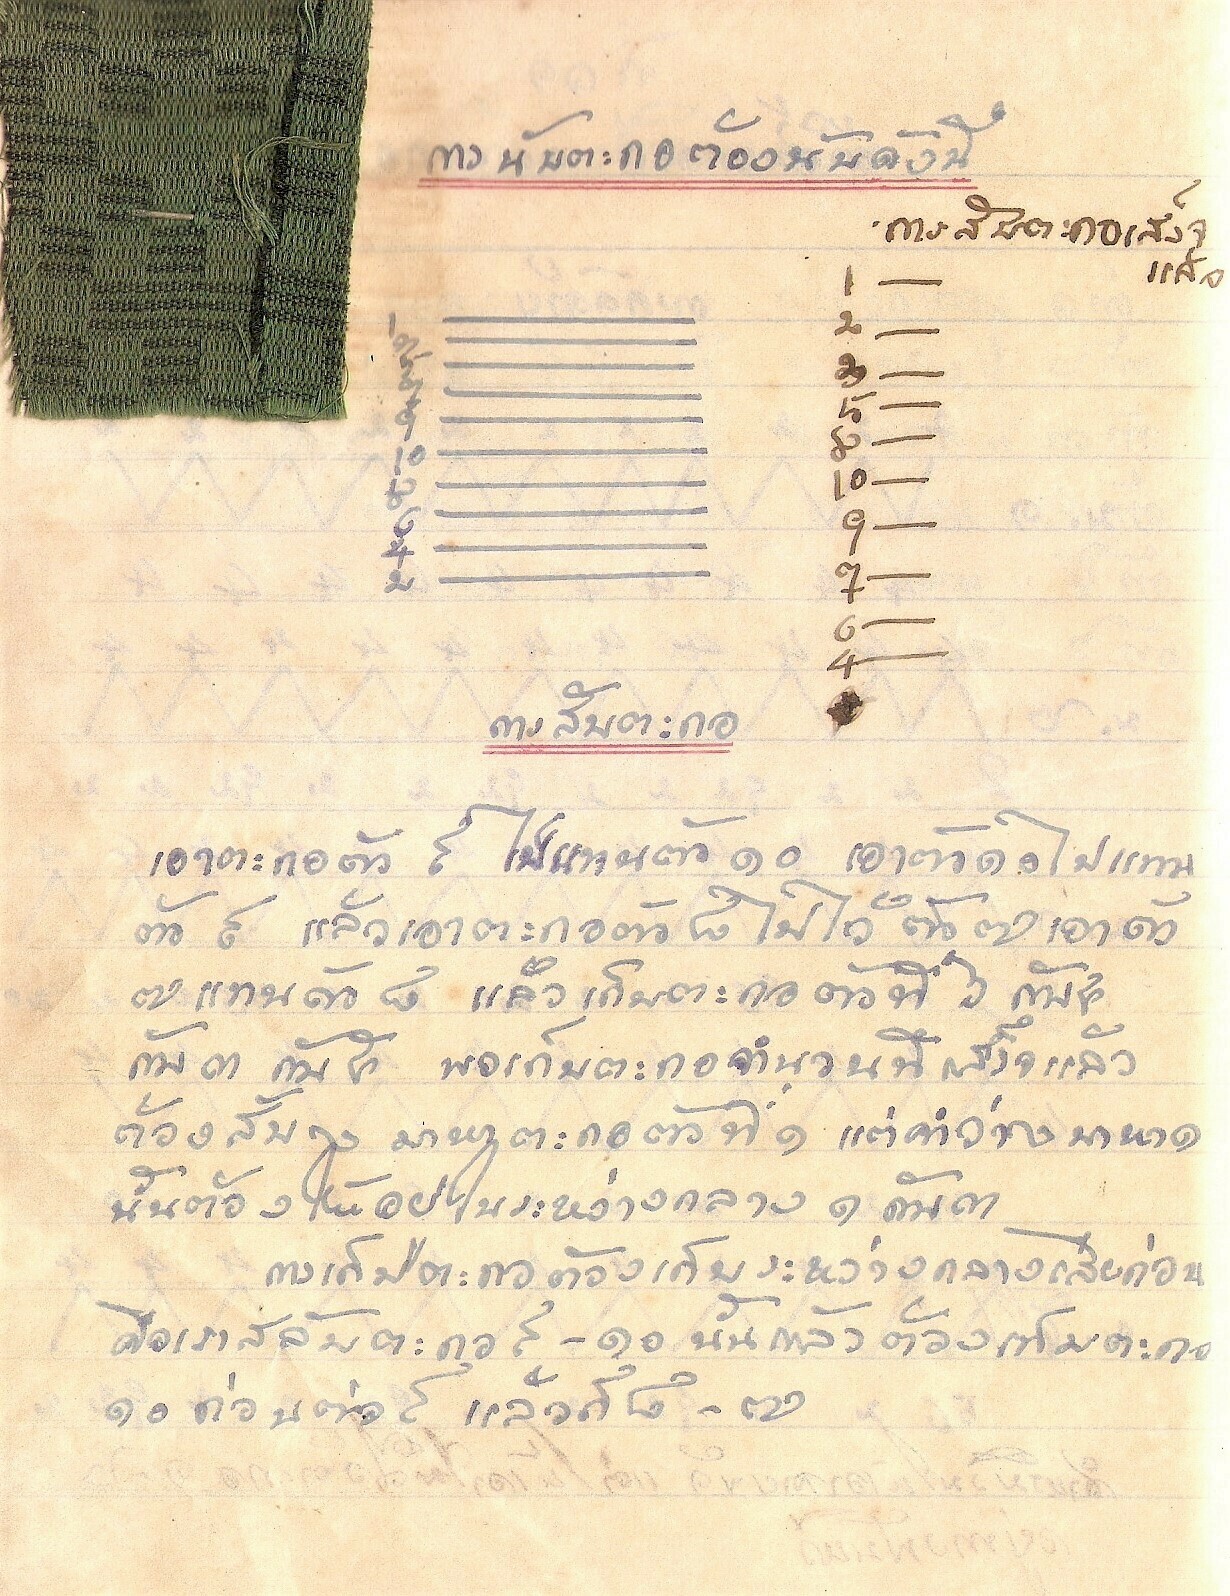 การนับตะกอต้องนับดังนี้
การสับตะกอเสร็จ
แล้ว
1
2
3
5
8
10
9
7
6
4
1
3
5
7
9
10
8
6
4
2
การสับตะกอ
เอาตะกอตัว ๙ ไปแทนตัว ๑๐ เอาตัว ๑๐ ไปแทน
ตัว ๙ แล้วเอาตะกอตัว ๘ ไปไว้ตัว ๗ เอาตัว
๗ แทนตัว ๘ แล้วเก็บตะกอตัวที่ กับ ๔
กับ ๓ กับ พอเก็บตะกอจำนวนนี้เสร็จแล้ว
ต้องสับ มาหาตะกอตัวที่ ๑ แต่ว่า มาหา ๑
นั้นต้องให้อยู่ในระหว่างกลาง ๑ กับ ๓
การเก็บตะกอต้องเก็บระหว่างกลางเสียก่อน
คือเราสลับตะกอ ๙ - ๑๐ นั้นแล้วต้องเก็บตะกอ
๑๐ ก่อนต่อ ๙ แล้วก็ ๘ - ๗